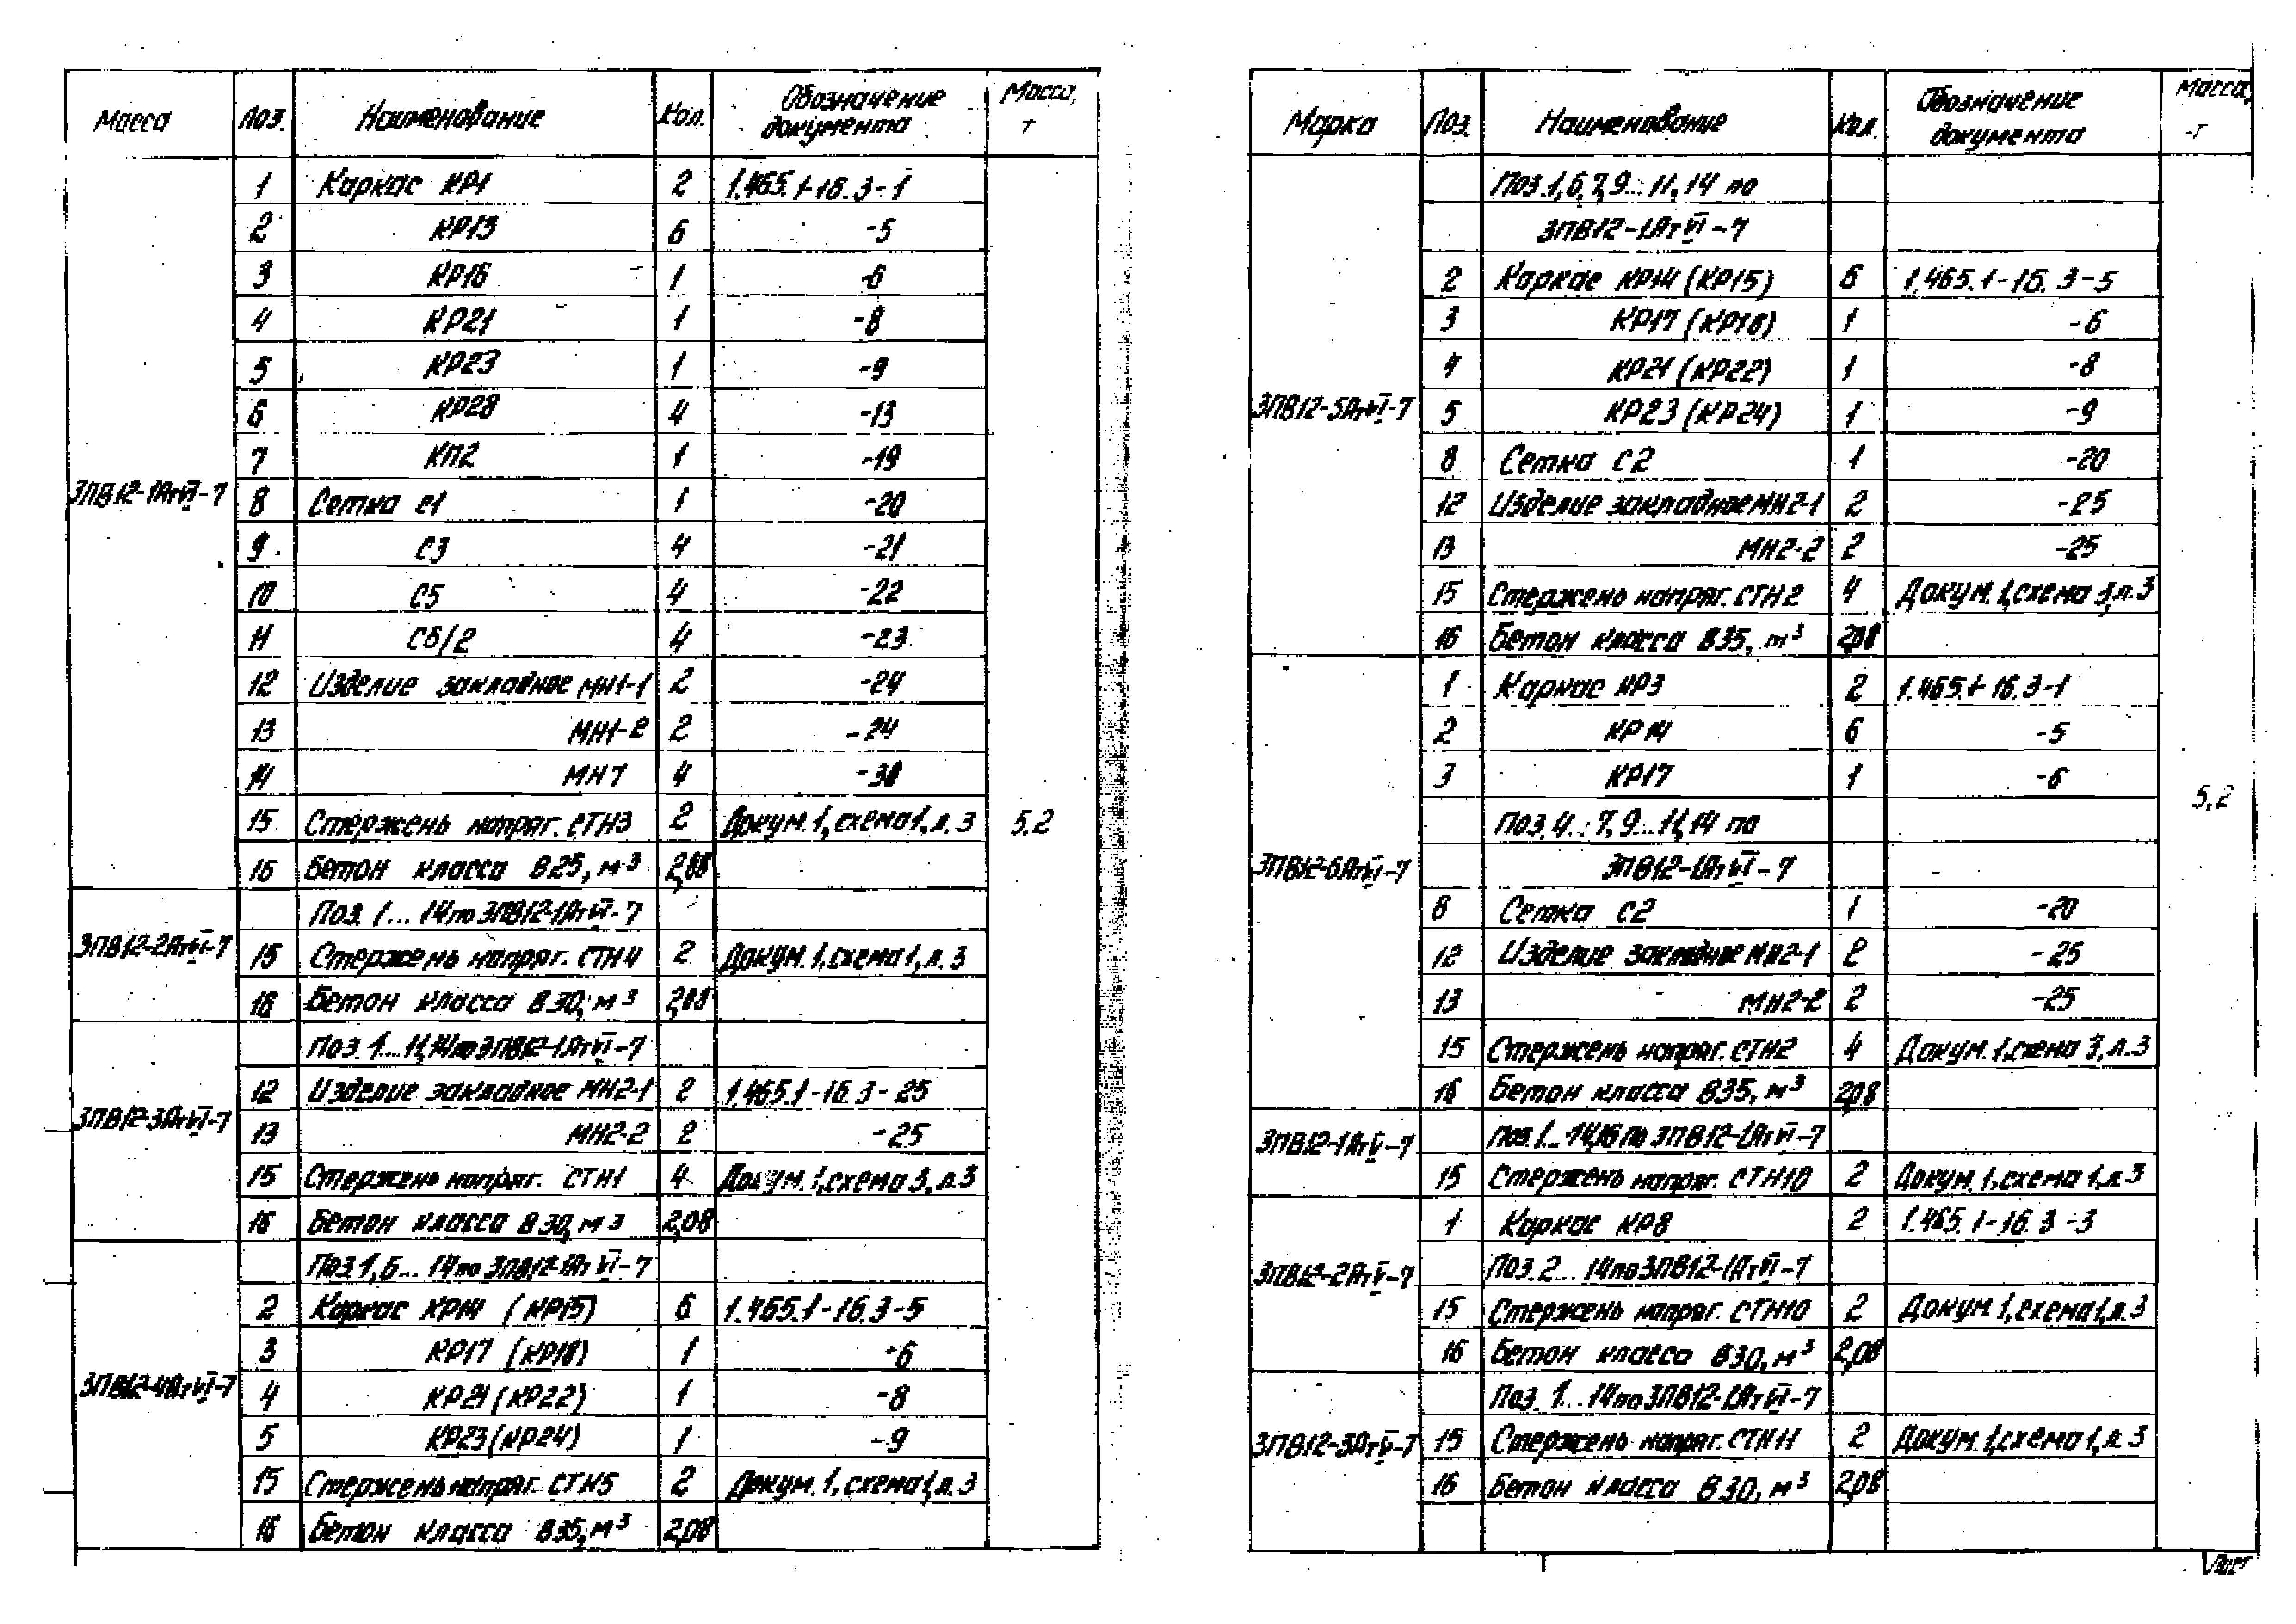 Масса Поз. Наименование Кол. Обозначение документа Масса, т
1 Каркас КР1 2 1.465.1-16.3-1
2 КР13 6 -5
3 КР16 1 -6
4 КР21 1 -8
5 КР23 1 -9
6 КР28 4 -13
7 КП2 1 -19
3ПВ12-1АтVI-7 8 Сетка С1 1 -20
9 С3 4 -21
10 С5 4 -22
11 С6/2 4 -23
12 Изделие закладное МН1-1 2 -24
13 МН1-2 2 -24
14 МН7 4 -30
15 Стержень напряг. СТН3 2 Докум.1, схема 1, л.3 5,2
16 Бетон класса В25, м³ 2,08
Поз. 1...14 по 3ПВ12-1АтVI-7
3ПВ12-2АтVI-7 15 Стержень напряг. СТН4 2 Докум.1, схема 1, л.3
16 Бетон класса В30, м³ 2,08
Поз. 1...11,14 по 3ПВ12-1АтVI-7
12 Изделие закладное МН2-1 2 1.465.1-16.3-25
3ПВ12-3АтVI-7 13 МН2-2 2 -25
15 Стержень напряг. СТН1 4 Докум.1, схема 3, л.3
16 Бетон класса В30, м³ 2,08
Поз.1,6...14 по 3ПВ12-1АтVI-7
2 Каркас КР14 (КР15) 6 1.465.1-16.3-5
3 КР17 (КР18) 1 -6
3ПВ12-4АтVI-7 4 КР21 (КР22) 1 -8
5 КР23 (КР24) 1 -9
15 Стержень напряг. СТН5 2 Докум.1, схема 1, л.3
16 Бетон класса В35, м³ 2,08
Марка Поз. Наименование Кол. Обозначение документа Масса, т
Поз.1,6,7,9...11,14 по
3ПВ12-1АтVI-7
2 Каркас КР14 (КР15) 6 1.465.1-16.3-5
3 КР17 (КР18) 1 -6
4 КР21 (КР22) 1 -8
3ПВ12-5АтVI-7 5 КР23 (КР24) 1 -9
8 Сетка С2 1 -20
12 Изделие закладное МН2-1 2 -25
13 МН2-2 2 -25
15 Стержень напряг. СТН2 4 Докум.1, схема 3, л.3
16 Бетон класса В35, м³ 2,08
1 Каркас КР3 2 1.465.1-16.3-1
2 КР14 6 -5
3 КР17 1 -6
5,2
Поз.4...7,9...11,14 по
3ПВ12-6АтVI-7 3ПВ12-1АтVI-7
8 Сетка С2 1 -20
12 Изделие закладное МН2-1 2 -25
13 МН2-2 2 -25
15 Стержень напряг. СТН2 4 Докум.1, схема 3, л.3
16 Бетон класса В35, м³ 2,08
3ПВ12-1АтV-7 Поз.1...14,16 по 3ПВ12-1АтVI-7
15 Стержень напряг. СТН10 2 Докум.1, схема 1, л.3
1 Каркас КР8 2 1.465.1-16.3-3
3ПВ12-2АтV-7 Поз.2...14 по 3ПВ12-1АтVI-7
15 Стержень напряг. СТН10 2 Докум.1, схема 1, л.3
16 Бетон класса В30, м³ 2,08
Поз. 1...14 по 3ПВ12-1АтVI-7
3ПВ12-3АтV-7 15 Стержень напряг. СТН11 2 Докум.1, схема 1, л.3
16 Бетон класса В30, м³ 2,08
Лист